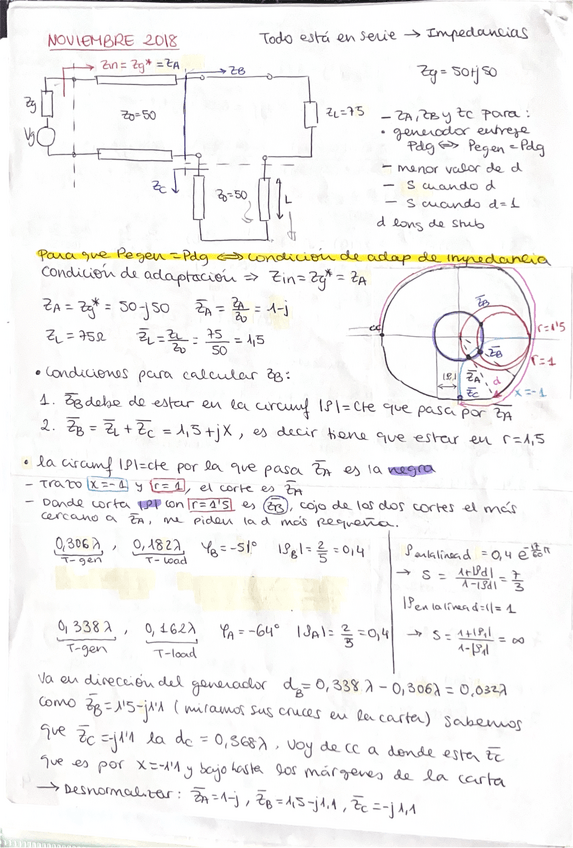 NOVIEMBRE 2018
Todo está en serie → Impedancias
Zin = Zg* = ZA
ZB
Zg = 50+j50
Zg
Vg
Z0=50
ZL=75
ZC
Z0=50
L
- ZA, ZB y ZC para:
• generador entregue
Pdg ⟺ Pegen = Pdg
- menor valor de d
- S cuando d
- S cuando d=1
d long de stub
Para que Pegen = Pdg ⟺ condición de adap de impedancia
Condición de adaptación ⇒ Zin = Zg* = ZA
ZA = Zg* = 50-j50   Z̄A = ZA/Z0 = 1-j
ZL = 75Ω   Z̄L = ZL/Z0 = 75/50 = 1,5
cc
Z̄B
r=1'5
Z̄B
r=1
|ρ|
Z̄A
d
Z̄C
x=-1
• Condiciones para calcular Z̄B:
1. Z̄B debe de estar en la circunf |ρ|=cte que pasa por Z̄A
2. Z̄B = Z̄L + Z̄C = 1,5+jX, es decir tiene que estar en r=1,5
• la circunf |ρ|=cte por la que pasa Z̄A es la negra
- Trazo x=-1 y r=1, el corte es Z̄A
- Donde corta |ρ| con r=1'5 es Z̄B, cojo de los dos cortes el más
cercano a Z̄A, me piden la d más pequeña.
0,306λ , 0,182λ   φB = -51°   |ρB| = 2/5 = 0,4
T-gen   T-load
→ S = 1+|ρd| / 1-|ρd| = 7/3
0,338λ , 0,162λ   φA = -64°   |ρA| = 2/5 = 0,4
T-gen   T-load
→ S = 1+|ρl| / 1-|ρl| = ∞
Va en dirección del generador dB = 0,338λ - 0,306λ = 0,032λ
como Z̄B = 1'5-j1'1 (miramos sus cruces en la carta) sabemos
que Z̄C = -j1'1 la dc = 0,368λ, voy de cc a donde esta Z̄C
que es por x=-1'1 y bajo hasta los márgenes de la carta
→ Desnormalizar: Z̄A = 1-j, Z̄B = 1,5-j1,1, Z̄C = -j1,1